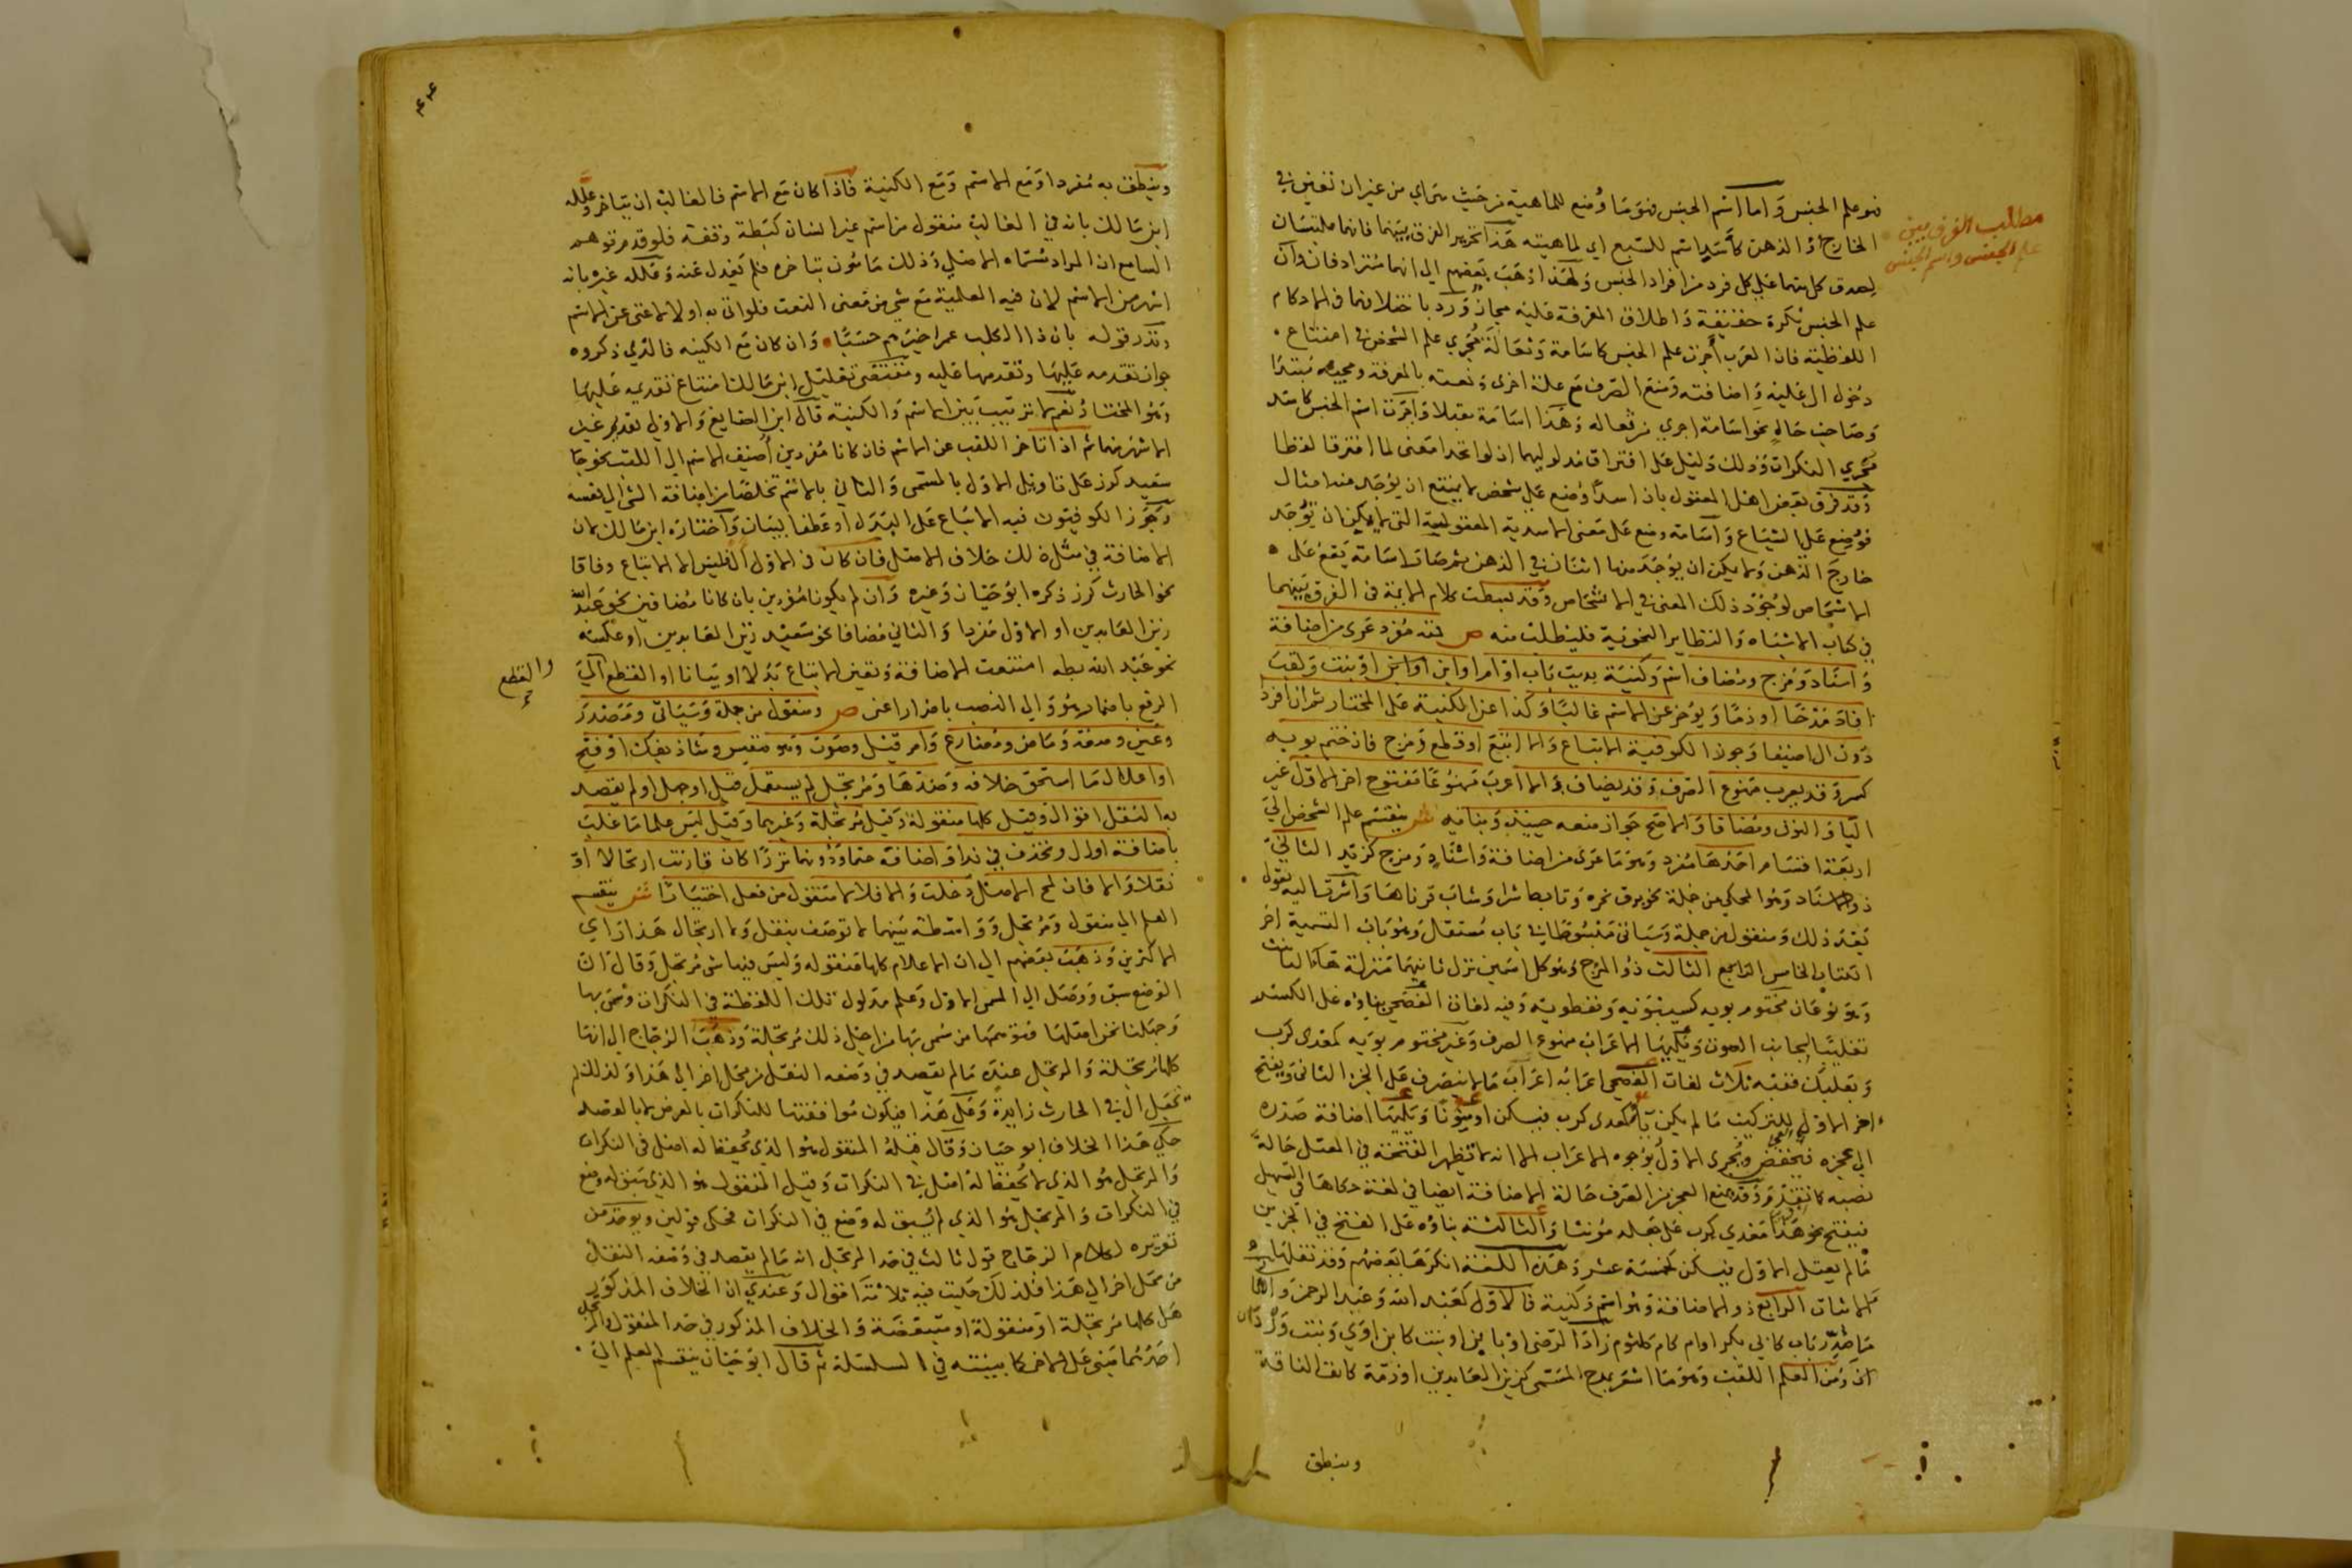 فهو علم الجنس وأما اسم الجنس فهو ما وُضع للماهية من حيث هي أي من غير أن تعين في
الخارج أو الذهن كأسد اسم للسبع أي لماهيته هذا تحرير الفرق بينهما فانهما ملتبسان
لصدق كل منهما على كل فرد من أفراد الجنس ولهذا ذهب بعضهم إلى انهما مترادفان وأن
علم الجنس نكرة حقيقة واطلاق المعرفة عليه مجاز ورد باختلافهما في الاحكام
اللفظية فان العرب أجرت علم الجنس كاسامة وثعالة مجرى علم الشخص في امتناع
دخول ال عليه واضافته ومنع الصرف مع علة اخرى ونعته بالمعرفة ومجيئه مبتدا
وصاحب حال نحو اسامة اجرى من ثعاله وهذا اسامة مقبلا واجرت اسم الجنس كاسد
مجرى النكرات وذلك دليل على افتراق مدلوليهما اذ لو اتحدا معنى لما افترقا لفظا
وقد فرق بعض اهل المعقول بان اسدا وضع على شخص لا يمتنع ان يوجد منه امثال
فوضع على الشياع وأسامة وضع على معنى الاسدية المعقولية التي لا يمكن ان توجد
خارج الذهن ولا يمكن ان يوجد منها اثنان في الذهن ثم صار اسامة يقع على
الاشخاص لوجود ذلك المعنى في الاشخاص وقد بسطت كلام الايمة في الفرق بينهما
في كتاب الاشباه والنظاير النحوية فليطلب منه ص فمنه مفرد عرى من اضافة
واسناد ومزج ومضاف اسم وكنية بديت باب او ام او ابن او بنت ولقب
افاد مدحا او ذما ويؤخر عن الاسم غالبا وكذا عن الكنية على المختار ثم ان افردا
دون ال اضيفا وجوز الكوفية الاتباع والا اتبع او قطع ومزج فان ختم بويه
كسر وقد يعرب ممنوع الصرف وقد يضاف والا اعرب ممنوعا مفتوح اخر الاول غير
اليا والنون ومضافا والاصح جواز منعه حينيذ وبنائه ش ينقسم علم الشخص الى
اربعة اقسام احدها مفرد وهو ما عرى من اضافة واسناد ومزج كزيد الثاني
ذو الاسناد وهو المحكي من جملة نحو برق نحره وتابط شرا وشاب قرناها وأشرت اليه بقولي
بعد ذلك ومنقول من جملة وسياتي مبسوطا في باب مستقل وهو باب التسمية اخر
الكتاب الخامس الرابع الثالث ذو المزج وهو كل اسمين نزل ثانيهما منزلة هاء التانيث
وهو نوعان مختوم بويه كسيبويه ونفطويه وفيه لغات الفصحى بناؤه على الكسر
تغليبا لجانب الصوت ويليها الاعراب ممنوع الصرف وغير مختوم بويه كمعدي كرب
وبعلبك ففيه ثلاث لغات الفصحى اعرابه اعراب ما لا ينصرف على الجزء الثاني ويفتح
اخر الاول للتركيب ما لم يكن يا كمعدي كرب فيسكن او نونا ويليها اضافة صدره
الى عجزه فيخفض ويجرى الاول بوجوه الاعراب الا انه لا تظهر الفتحة في المعتل حالة
نصبه كما تقدم وقد يمنع العجز من الصرف حالة الاضافة ايضا في لغة حكاها في التسهيل
فيفتح نحو هذا معدي كرب على جعله مونثا والثالثة بناؤه على الفتح في الجزءين
ما لم يعتل الاول فيسكن كخمسة عشر وهذه اللغة انكرها بعضهم وقد نقلها
الاثبات الرابع ذو الاضافة وهو اسم وكنية فالاول كعبد الله وعبد الرحمن و
ما صدر باب كابي بكر او ام كام كلثوم زاد الرضي او بابن او بنت كابن اوى وبنت وردان
ان ومن العلم اللقب وهو ما اشعر بمدح المسمى كزين العابدين او ذمه كانف الناقة
وينطق
مطلب الفرق بين
علم الجنس واسم الجنس
وينطق به مفردا ومع الاسم ومع الكنية فاذا كان مع الاسم فالغالب ان يتاخر وعلله
ابن مالك بانه في الغالب منقول من اسم غير انسان كبطة وقفة فلو قدم توهم
السامع ان المراد مسماه الاصلي وذلك مامون بتاخره فلم يعدل عنه وعلله غيره بانه
اشهر من الاسم لان فيه العلمية مع شي من معنى النعت فلو اتى به اولا لاغنى عن الاسم
وندر قوله بان ذا الكلب عمرا خيرهم حسبا وان كان مع الكنيه فالذي ذكروه
جواز تقدمه عليها وتقدمها عليه ومقتضى تعليل ابن مالك امتناع تقديمه عليها
وهو المختار نعم لا ترتيب بين الاسم والكنية قال ابن الصايغ والاولى تقديم غير
الاشهر منهما ثم اذا تاخر اللقب عن الاسم فان كانا مفردين أضيف الاسم الى اللقب نحو جا
سعيد كرز على تاويل الاول بالمسمى والثاني بالاسم تخلصا من اضافة الشي الى نفسه
وجوز الكوفيون فيه الاتباع على البدل او عطف البيان واختاره ابن مالك لان
الاضافة في مثل ذلك خلاف الاصل فان كان في الاول ال فليس الا الاتباع وفاقا
نحو الحارث كرز ذكره ابو حيان وغيره وان لم يكونا مفردين بان كانا مضافين نحو عبد الله
زين العابدين او الاول مفردا والثاني مضافا نحو سعيد زين العابدين او عكسه
نحو عبد الله بطه امتنعت الاضافة وتعين الاتباع بدلا او بيانا او القطع الى
الرفع باضمار هو والى النصب باضمار اعنى ص ومنقول من جملة وسياتي ومصدر
وعين وصفة وماض ومضارع وامر قيل وصوت وهو مقيس وشاذ بفك او فتح
او اعلال ما استحق خلافه وضدها ومرتجل لم يستعمل قبل او جهل او لم يقصد
به النقل اقوال وقيل كلها منقولة وقيل مرتجلة وغيرهما وقيل ليس علما ما غلب
باضافة او ال وتحذف في ندا واضافة حتما ودونهما نزرا كان قارنت ارتجالا او
نقلا والا فان لمح الاصل دخلت والا فلا لا منقول من فعل اختيارا ش ينقسم
العلم الى منقول ومرتجل وواسطة بينهما لا توصف بنقل ولا ارتجال هذا راي
الاكثرين وذهب بعضهم الى ان الاعلام كلها منقوله وليس فيها شي مرتجل وقال ان
الوضع سبق ووصل الى المسمى الاول وعلم مدلول تلك اللفظة في النكرات وسمي بها
وجهلنا نحن اصلها فتوهمها من سمى بها من اجل ذلك مرتجلة وذهب الزجاج الى انها
كلها مرتجلة والمرتجل عنده ما لم يقصد في وضعه النقل من محل اخر الى هذا ولذلك لم
تجعل ال في الحارث زايدة وعلى هذا فيكون موافقتها للنكرات بالعرض لا بالقصد
حكى هذا الخلاف ابو حيان وقال قبله المنقول هو الذي يحفظ له اصل في النكرات
والمرتجل هو الذي لا يحفظ له اصل في النكرات وقيل المنقول هو الذي سبق له وضع
في النكرات والمرتجل هو الذي لم يسبق له وضع في النكرات فحكى قولين ويوخذ من
تقريره لكلام الزجاج قول ثالث في حد المرتجل انه ما لم يقصد في وضعه النقل
من محل اخر الى هذا فلذلك حكيت فيه ثلاثة اقوال وعندي ان الخلاف المذكور
هل كلها مرتجلة او منقولة او متبعضة والخلاف المذكور في حد المنقول والمرتجل
احدهما مبني على الاخر كما بينته في السلسلة ثم قال ابو حيان ينقسم العلم الى
والقطع